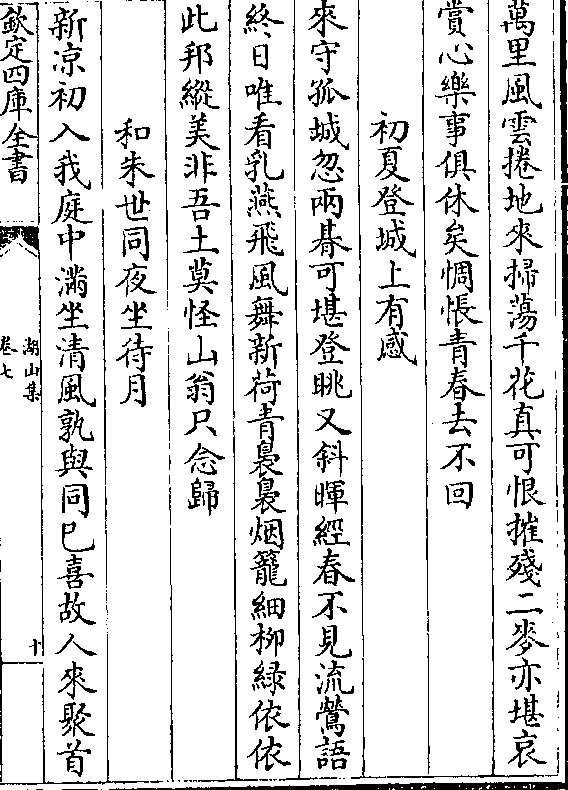 萬里風雲捲地來掃蕩千花真可恨摧殘二麥亦堪哀
賞心樂事俱休矣惆悵青春去不回
初夏登城上有感
來守孤城忽兩朞可堪登眺又斜暉經春不見流鶯語
終日唯看乳燕飛風舞新荷青裊裊烟籠細柳緑依依
此邦縱美非吾土莫怪山翁只念歸
和朱世同夜坐待月
新凉初入我庭中滿坐清風孰與同已喜故人來聚首
欽定四庫全書
湖山集
卷七
十